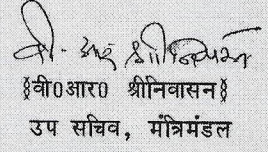 वी. आर श्रीनिवासन
§वी0आर0 श्रीनिवासन§
उप सचिव, मंत्रिमंडल